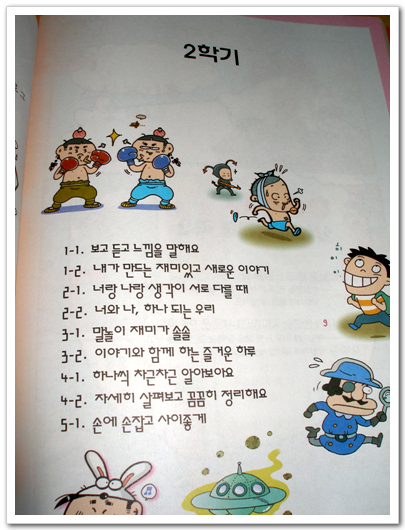 2학기
1-1. 보고 듣고 느낌을 말해요
1-2. 내가 만드는 재미있고 새로운 이야기
2-1. 너랑 나랑 생각이 서로 다를 때
2-2. 너와 나, 하나 되는 우리
3-1. 말놀이 재미가 솔솔
3-2. 이야기와 함께 하는 즐거운 하루
4-1. 하나씩 차근차근 알아보아요
4-2. 자세히 살펴보고 꼼꼼히 정리해요
5-1. 손에 손잡고 사이좋게